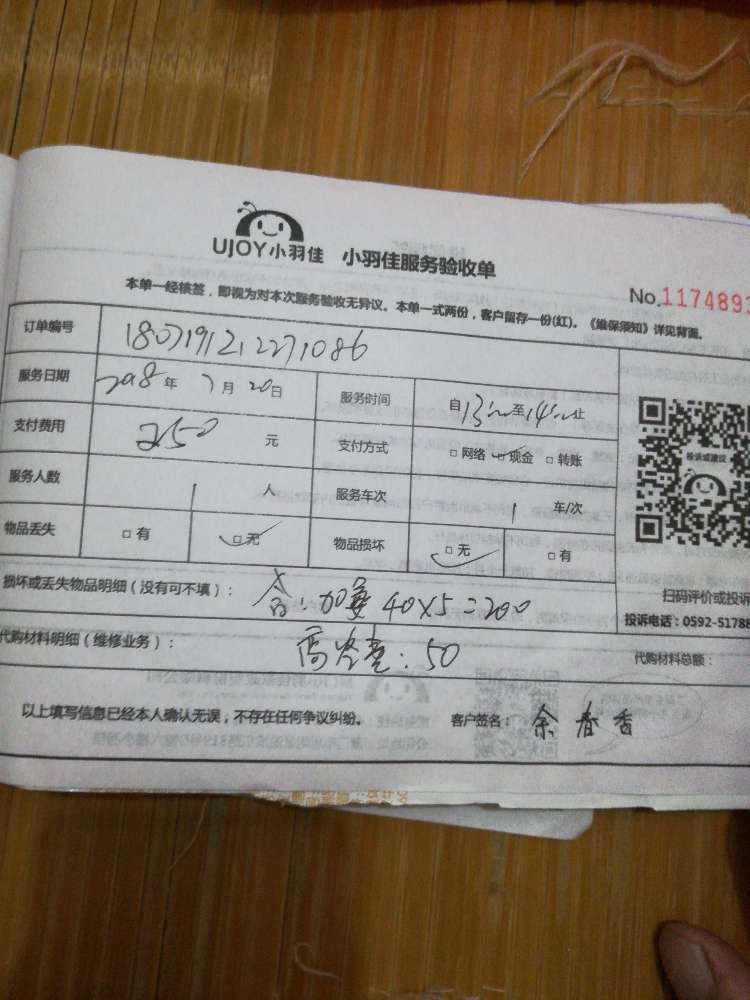 UJOY小羽佳 小羽佳服务验收单
No.1174893
本单一经核签，即视为对本次服务验收无异议。本单一式两份，客户留存一份(红)。《维保须知》详见背面。
订单编号 1807191212271086
服务日期 2018年7月20日 服务时间 自13:00至14:00止
支付费用 250元 支付方式 □网络 ☑现金 □转账
服务人数 1人 服务车次 1车/次
物品丢失 □有 ☑无 物品损坏 ☑无 □有
投诉或建议
扫码评价或投诉
投诉电话：0592-51788
损坏或丢失物品明细（没有可不填）： 40X5=200
代购材料明细（维修业务）： 高空费：50
代购材料总额：
以上填写信息已经本人确认无误，不存在任何争议纠纷。 客户签名：余春香